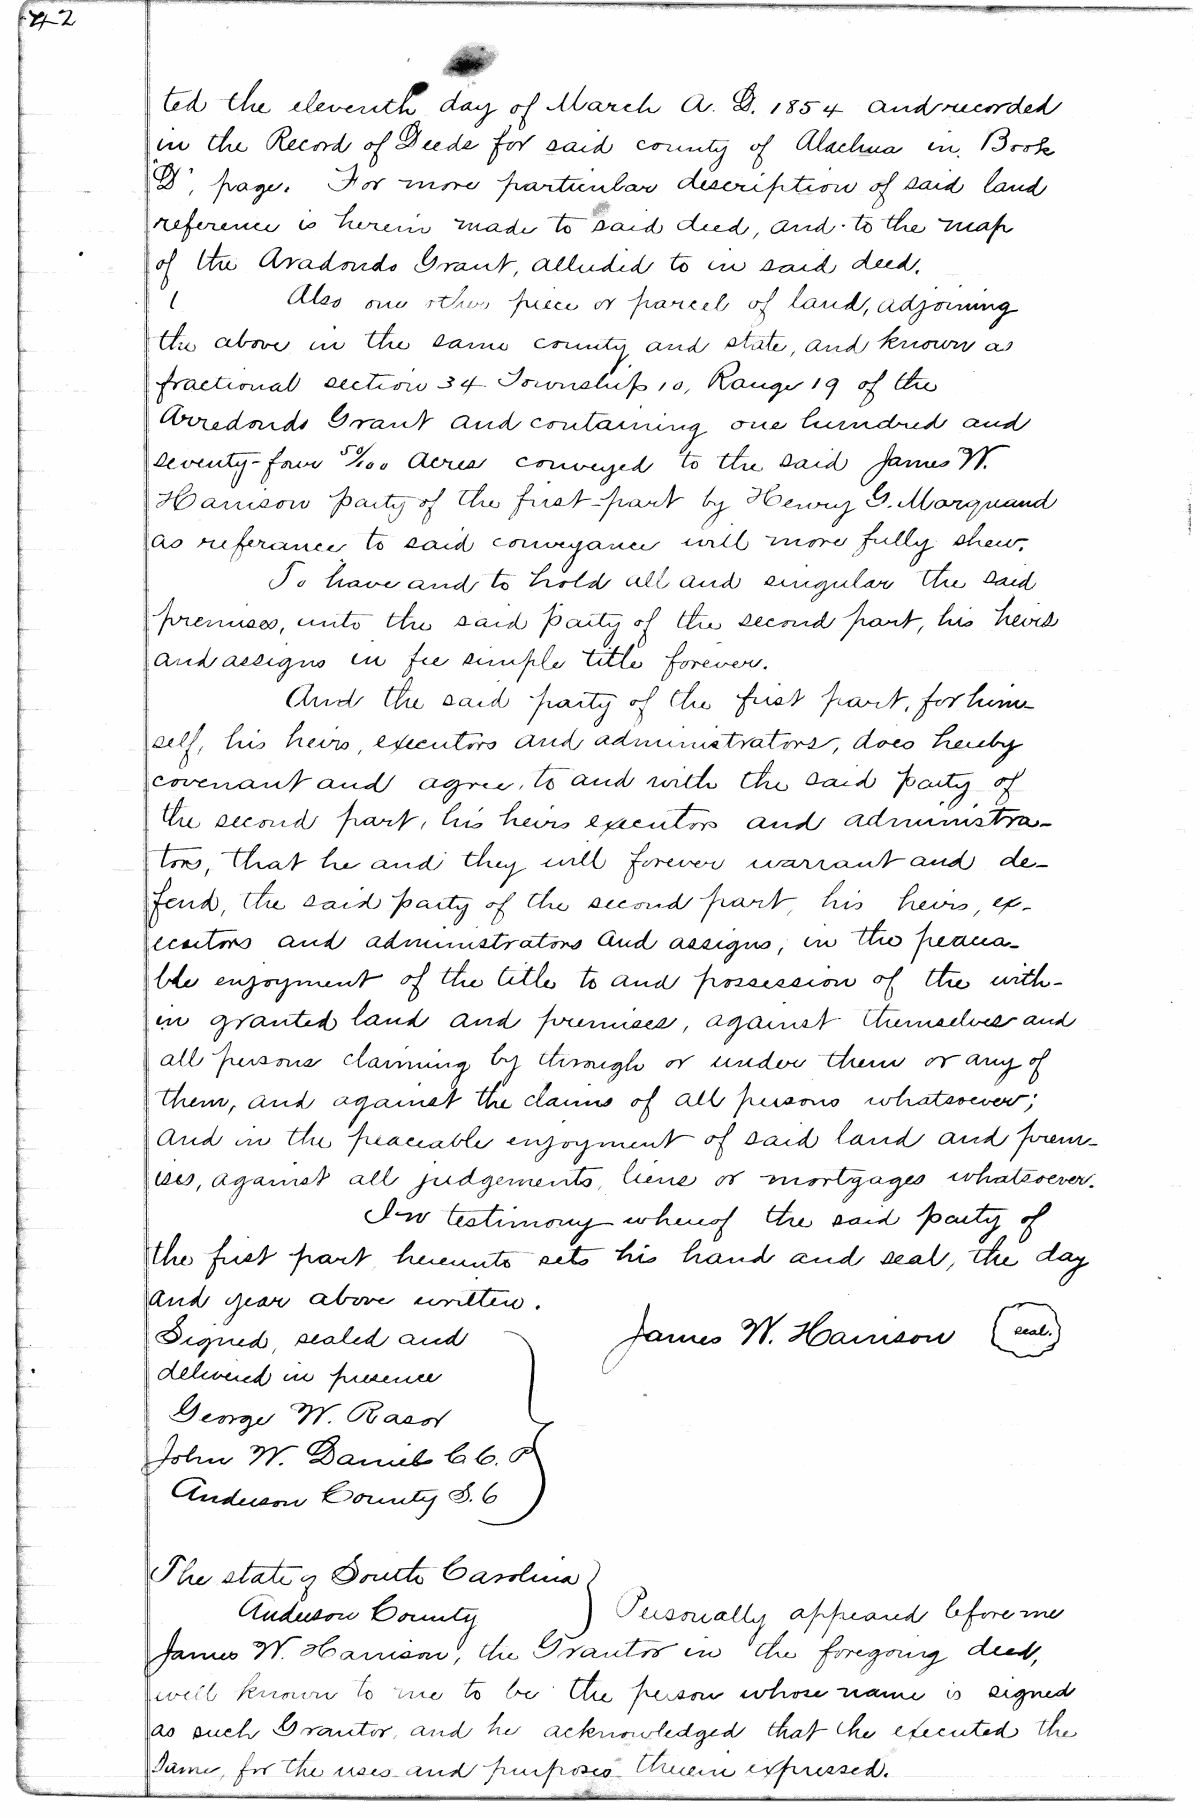 42
ted the eleventh day of March A. D. 1854 and recorded
in the Record of Deeds for said county of Alachua in Book
"D", page. For more particular description of said land
reference is herein made to said deed, and to the map
of the Aradondo Grant, alluded to in said deed.
Also one other piece or parcel of land, adjoining
the above in the same county and state, and known as
fractional section 34 Township 10, Range 19 of the
Arredondo Grant and containing one hundred and
seventy-four 50/100 Acres conveyed to the said James W.
Harrison party of the first-part by Henry G. Marquand
as referance to said conveyance will more fully shew.
To have and to hold all and singular the said
premises, unto the said party of the second part, his heirs
and assigns in fee simple title forever.
And the said party of the first part, for him-
self, his heirs, executors and administrators, does hereby
covenant and agree, to and with the said party of
the second part, his heirs executors and administra-
tors, that he and they will forever warrant and de-
fend, the said party of the second part, his heirs, ex-
ecutors and administrators and assigns, in the peacea-
ble enjoyment of the title to and possession of the with-
in granted land and premises, against themselves and
all persons claiming by through or under them or any of
them, and against the claims of all persons whatsoever;
and in the peaceable enjoyment of said land and prem-
ises, against all judgements, liens or mortgages whatsoever.
In testimony whereof the said party of
the first part hereunto sets his hand and seal, the day
and year above written.
Signed, sealed and
James W. Harrison seal.
delivered in presence
George W. Rasor
John W. Daniels C. C. P
Anderson County S. C
The state of South Carolina
Anderson County Personally appeared before me
James W. Harrison, the Grantor in the foregoing deed,
well known to me to be the person whose name is signed
as such Grantor, and he acknowledged that he executed the
same, for the uses and purposes therein expressed.